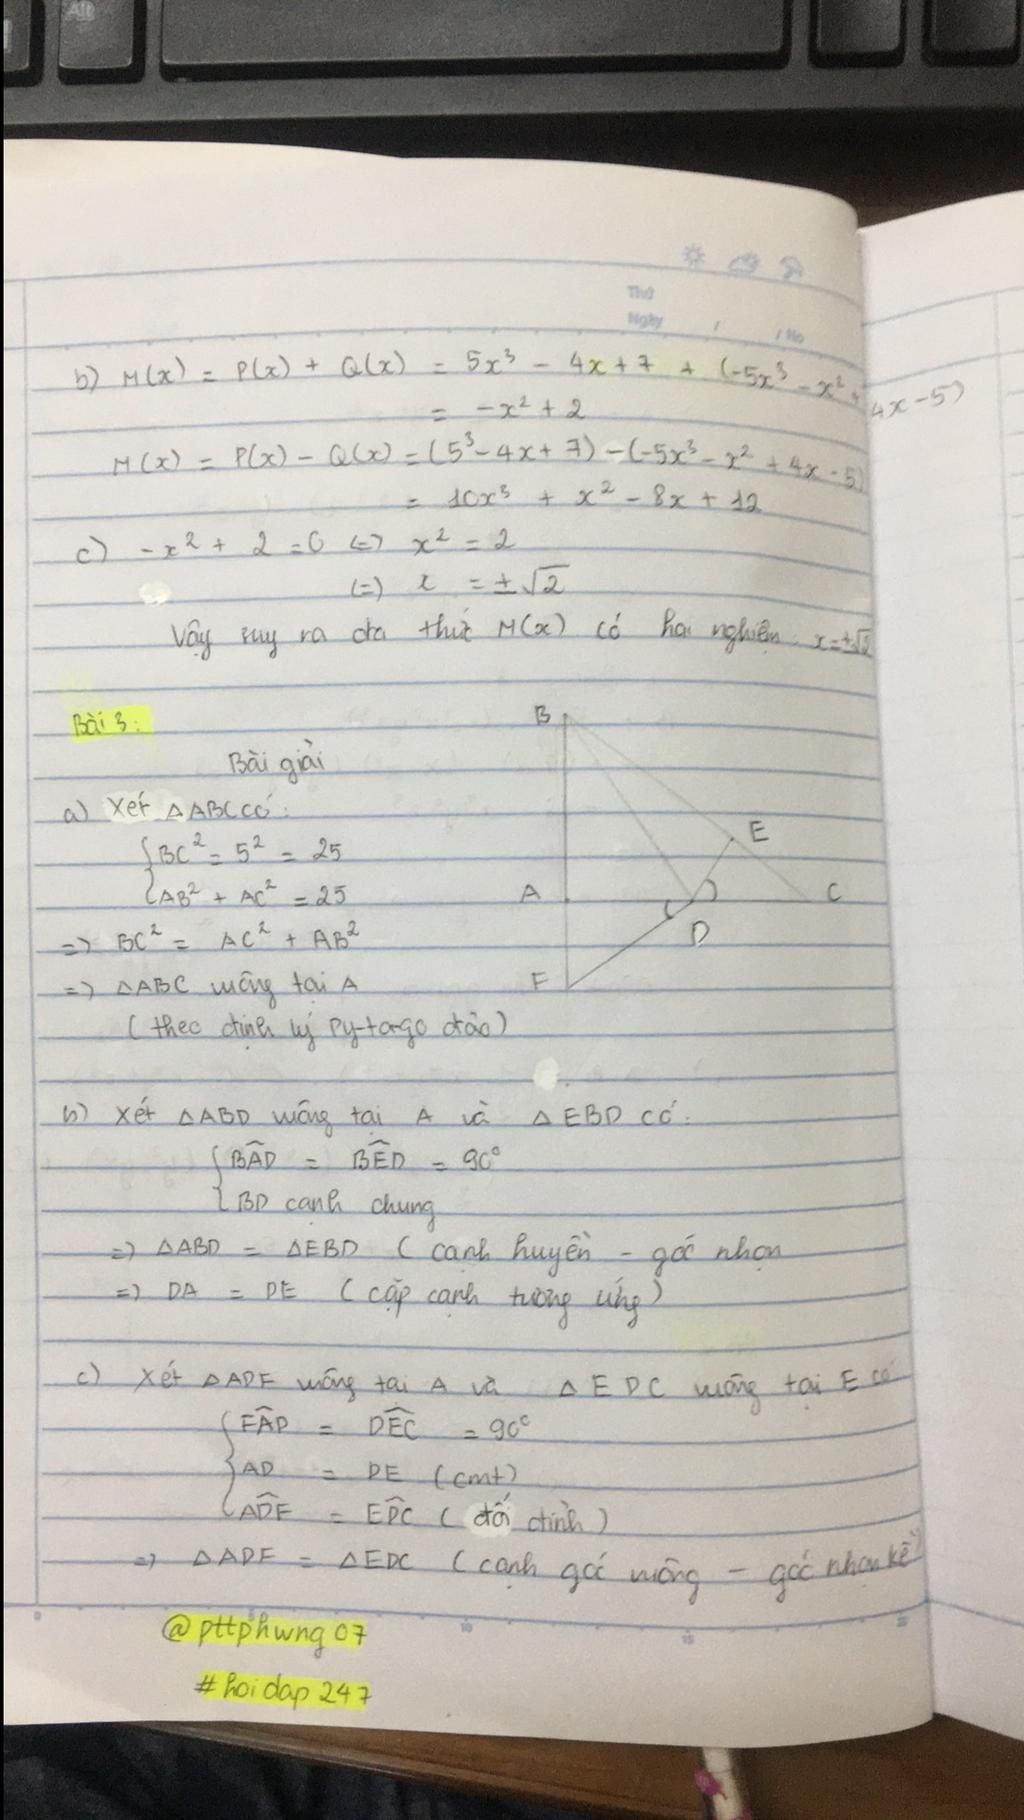 Alt
Thứ
Ngày / / No
b) M(x) = P(x) + Q(x) = 5x³ - 4x + 7 + (-5x³ - x² + 4x - 5)
= -x² + 2
M(x) = P(x) - Q(x) = (5³ - 4x + 7) - (-5x³ - x² + 4x - 5)
= 10x³ + x² - 8x + 12
c) -x² + 2 = 0 <=> x² = 2
<=> x = ±√2
Vậy suy ra đa thức M(x) có hai nghiệm x = ±√2
Bài 3:
Bài giải
a) Xét △ABC có:
BC² = 5² = 25
AB² + AC² = 25
=> BC² = AC² + AB²
=> △ABC vuông tại A
(theo định lý Py-ta-go đảo)
B
E
A
C
D
F
b) Xét △ABD vuông tại A và △EBD có:
BÂD = BÊD = 90°
BD cạnh chung
=> △ABD = △EBD (cạnh huyền - góc nhọn
=> DA = DE (cặp cạnh tương ứng)
c) Xét △ADF vuông tại A và △EDC vuông tại E có
FÂD = DÊC = 90°
AD = DE (cmt)
AD̂F = ED̂C (đối đỉnh)
=> △ADF = △EDC (cạnh góc vuông - góc nhọn kề)
0 5 10 15 20
@pttphwng07
#hoidap247